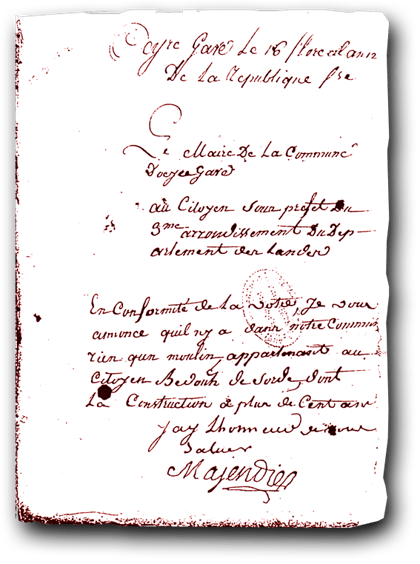 Oeyre Gave Le 16 floreal an 12
De La Republique fse
Le Maire De La Commune
Doeyre Gave
au Citoyen Sous prefet Du
3me arrondissement Du Dep-
artement des Landes
En Conformité de La votre, Je vous
annonce quil ny a dans notre Commune
rien qun moulin, appartenant au
Citoyen Bedouh de Sorde, dont
La Construction a plus de Cent ans
Jay Lhonneur de vous
Saluer
Majendie